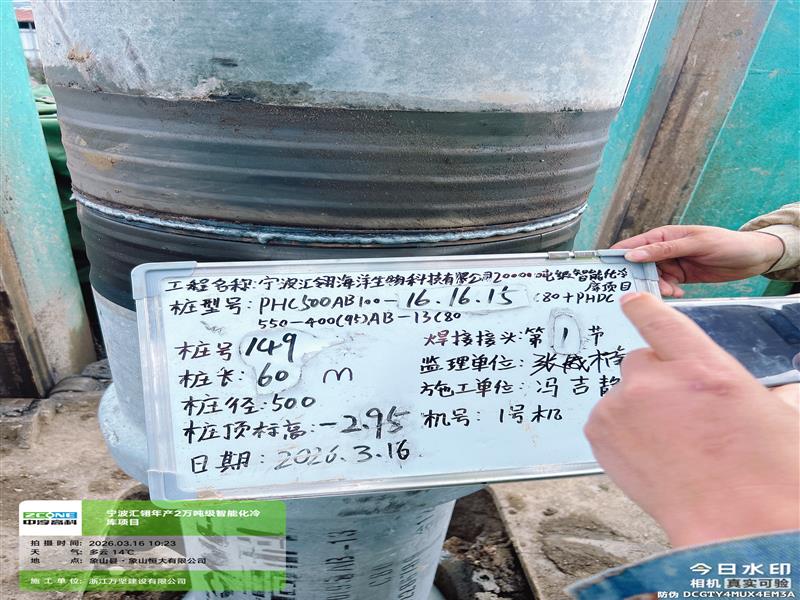 工程名称:宁波汇翎海洋生物科技有限公司20000吨级智能化冷
库项目
桩型号: PHC500AB100-16.16.15 C80+PHDC
550-400(95)AB-13C80
桩号 149
焊接接头: 第1节
桩长: 60 m
监理单位: 张威楠
桩径: 500
施工单位: 冯吉静
桩顶标高: -2.95
机号: 1号机
日期: 2026.3.16
ZCONE
中淳高科
宁波汇翎年产2万吨级智能化冷
库项目
拍摄时间: 2026.03.16 10:23
天气: 多云 14℃
地点: 象山县·象山恒大有限公司
施工单位: 浙江万坚建设有限公司
今日水印
相机 真实可验
防伪 DCGTY4MUX4EM3A